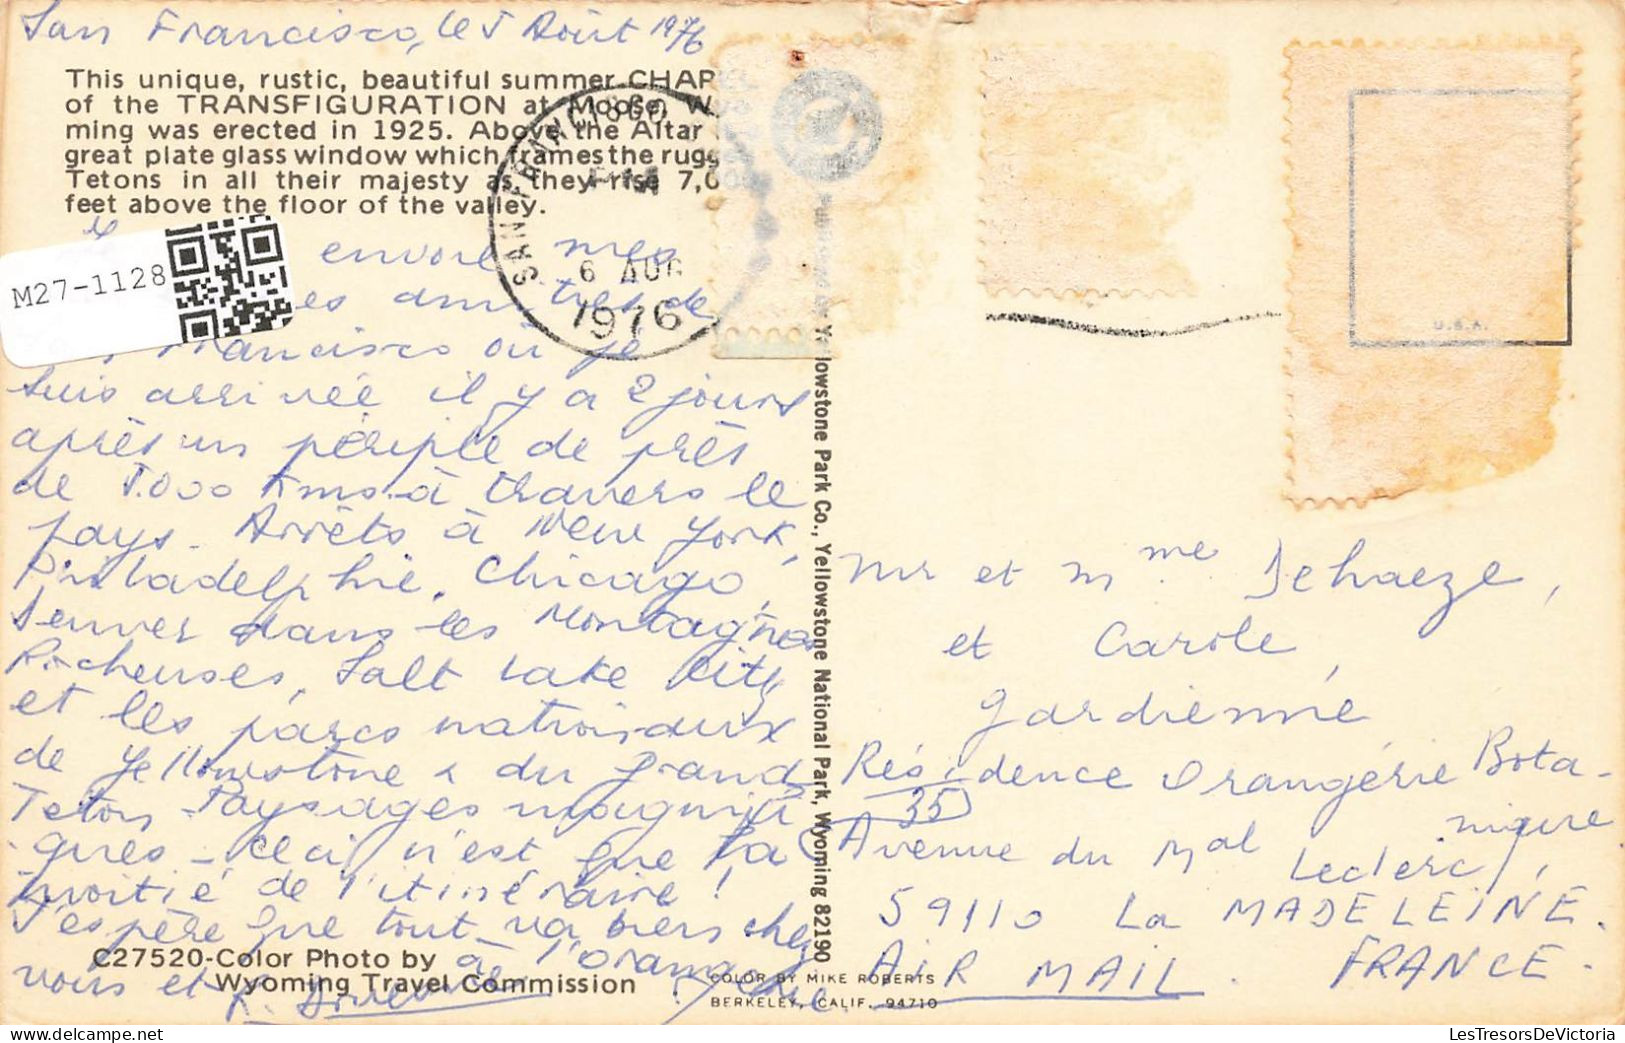 San Francisco, le 5 Août 1976
This unique, rustic, beautiful summer CHAP
of the TRANSFIGURATION at Moose, W
ming was erected in 1925. Above the Altar
great plate glass window which frames the rugg
Tetons in all their majesty as they rise 7,0
feet above the floor of the valley.
SAN FRANCISCO
PM
6 AUG
1976
M27-1128
Je envoie mes
es amitiés de
Francisco où je
suis arrivée il y a 2 jours
après un périple de près
de 5.000 Kms à travers le
pays. Arrêts à New York,
Philadelphie, Chicago,
Denver dans les Montagnes
Rocheuses, Salt Lake City
et les parcs nationaux
de Yellowstone & du Grand
Teton Paysages magnifi
ques - Ceci n'est que la
moitié de l'itinéraire !
J'espère que tout va bien chez
vous et à l'orangerie
C27520-Color Photo by
Wyoming Travel Commission
COLOR BY MIKE ROBERTS
BERKELEY, CALIF. 94710
Yellowstone Park Co., Yellowstone National Park, Wyoming 82190
U.S.A.
Mr et Mme Dehaeze,
et Carole,
gardienne
Résidence Orangerie Bota-
nique
35 Avenue du Mal Leclerc,
59110 La MADELEINE.
AIR MAIL. FRANCE.
LesTresorsDeVictoria